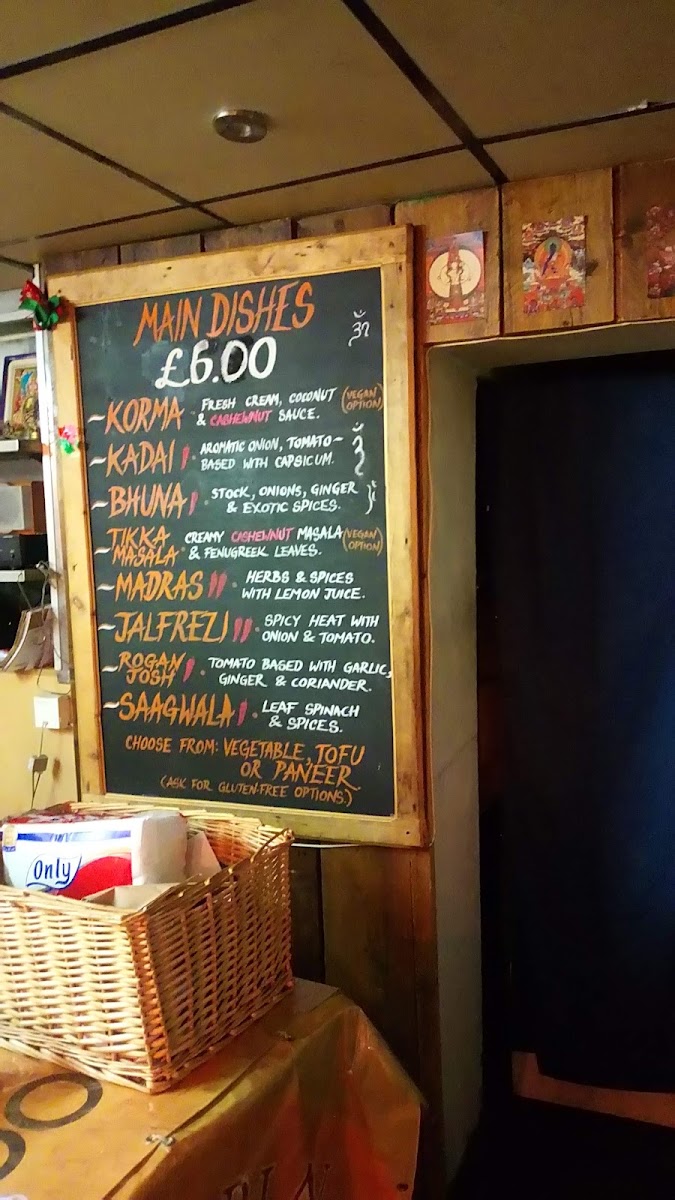 MAIN DISHES
£6.00
ॐ
~KORMA • FRESH CREAM, COCONUT (VEGAN
& CASHEWNUT SAUCE. OPTION)
~KADAI • AROMATIC ONION, TOMATO-
BASED WITH CAPSICUM.
~BHUNA • STOCK, ONIONS, GINGER
& EXOTIC SPICES.
~TIKKA CREAMY CASHEWNUT MASALA (VEGAN
MASALA • & FENUGREEK LEAVES. OPTION)
~MADRAS • HERBS & SPICES
WITH LEMON JUICE.
~JALFREZI • SPICY HEAT WITH
ONION & TOMATO.
~ROGAN • TOMATO BASED WITH GARLIC,
JOSH GINGER & CORIANDER.
~SAAGWALA • LEAF SPINACH
& SPICES.
CHOOSE FROM: VEGETABLE, TOFU
OR PANEER
(ASK FOR GLUTEN-FREE OPTIONS.)
Only